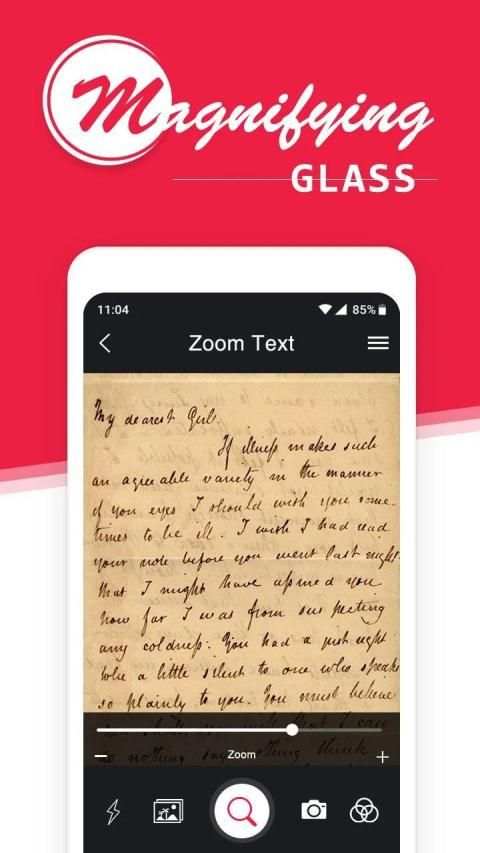 Magnifying
GLASS
11:04
85%
Zoom Text
My dearest Girl,
If illness makes such
an agreeable variety in the manner
of your eyes I should wish you some-
times to be ill. I wish I had read
your note before you went last night
that I might have assured you
how far I was from suspecting
any coldness: You had a just right
to be a little silent to one who speaks
so plainly to you. You must believe
I can
nothing say nothing think
Zoom